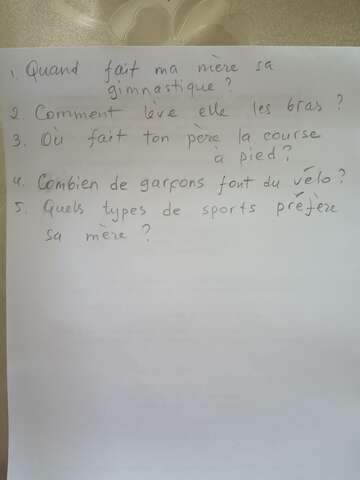 1. Quand fait ma mère sa
gimnastique ?
2. Comment lève elle les bras ?
3. Où fait ton père la course
à pied ?
4. Combien de garçons font du vélo ?
5. Quels types de sports préfère
sa mère ?